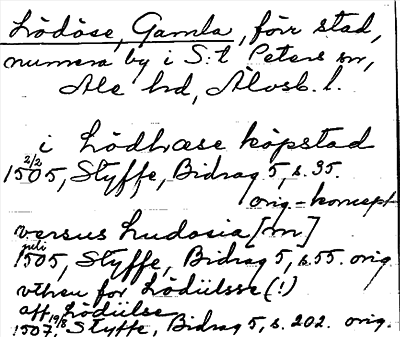 Lödöse, Gamla, förr stad,
numera by i S:t Peters sn,
Ale hd, Älvsb. l.
i Lödhæse köpstad
2/2
1505, Styffe, Bidrag 5, s. 35.
orig.-koncept
versus Ludosia [m]
juli
1505, Styffe, Bidrag 5, s. 55. orig
vthen for Lödüilsse (!)
aff Lödüilse
19/8
1507, Styffe, Bidrag 5, s. 202. orig.